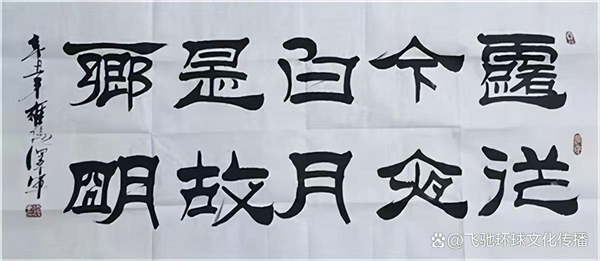 露從
今夜
白月
是故
鄉明
辛丑年
@飞驰环球文化传播